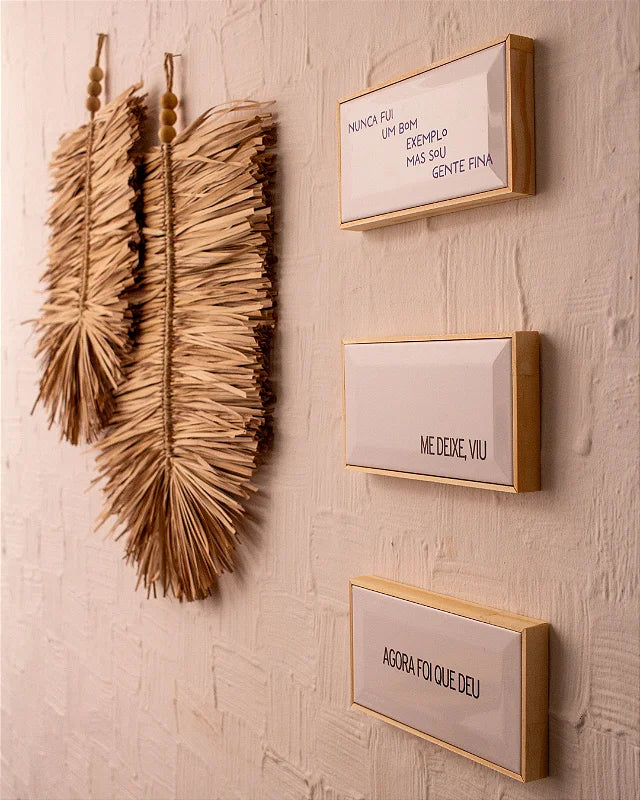 NUNCA FUI
UM BOM
EXEMPLO
MAS SOU
GENTE FINA
ME DEIXE, VIU
AGORA FOI QUE DEU